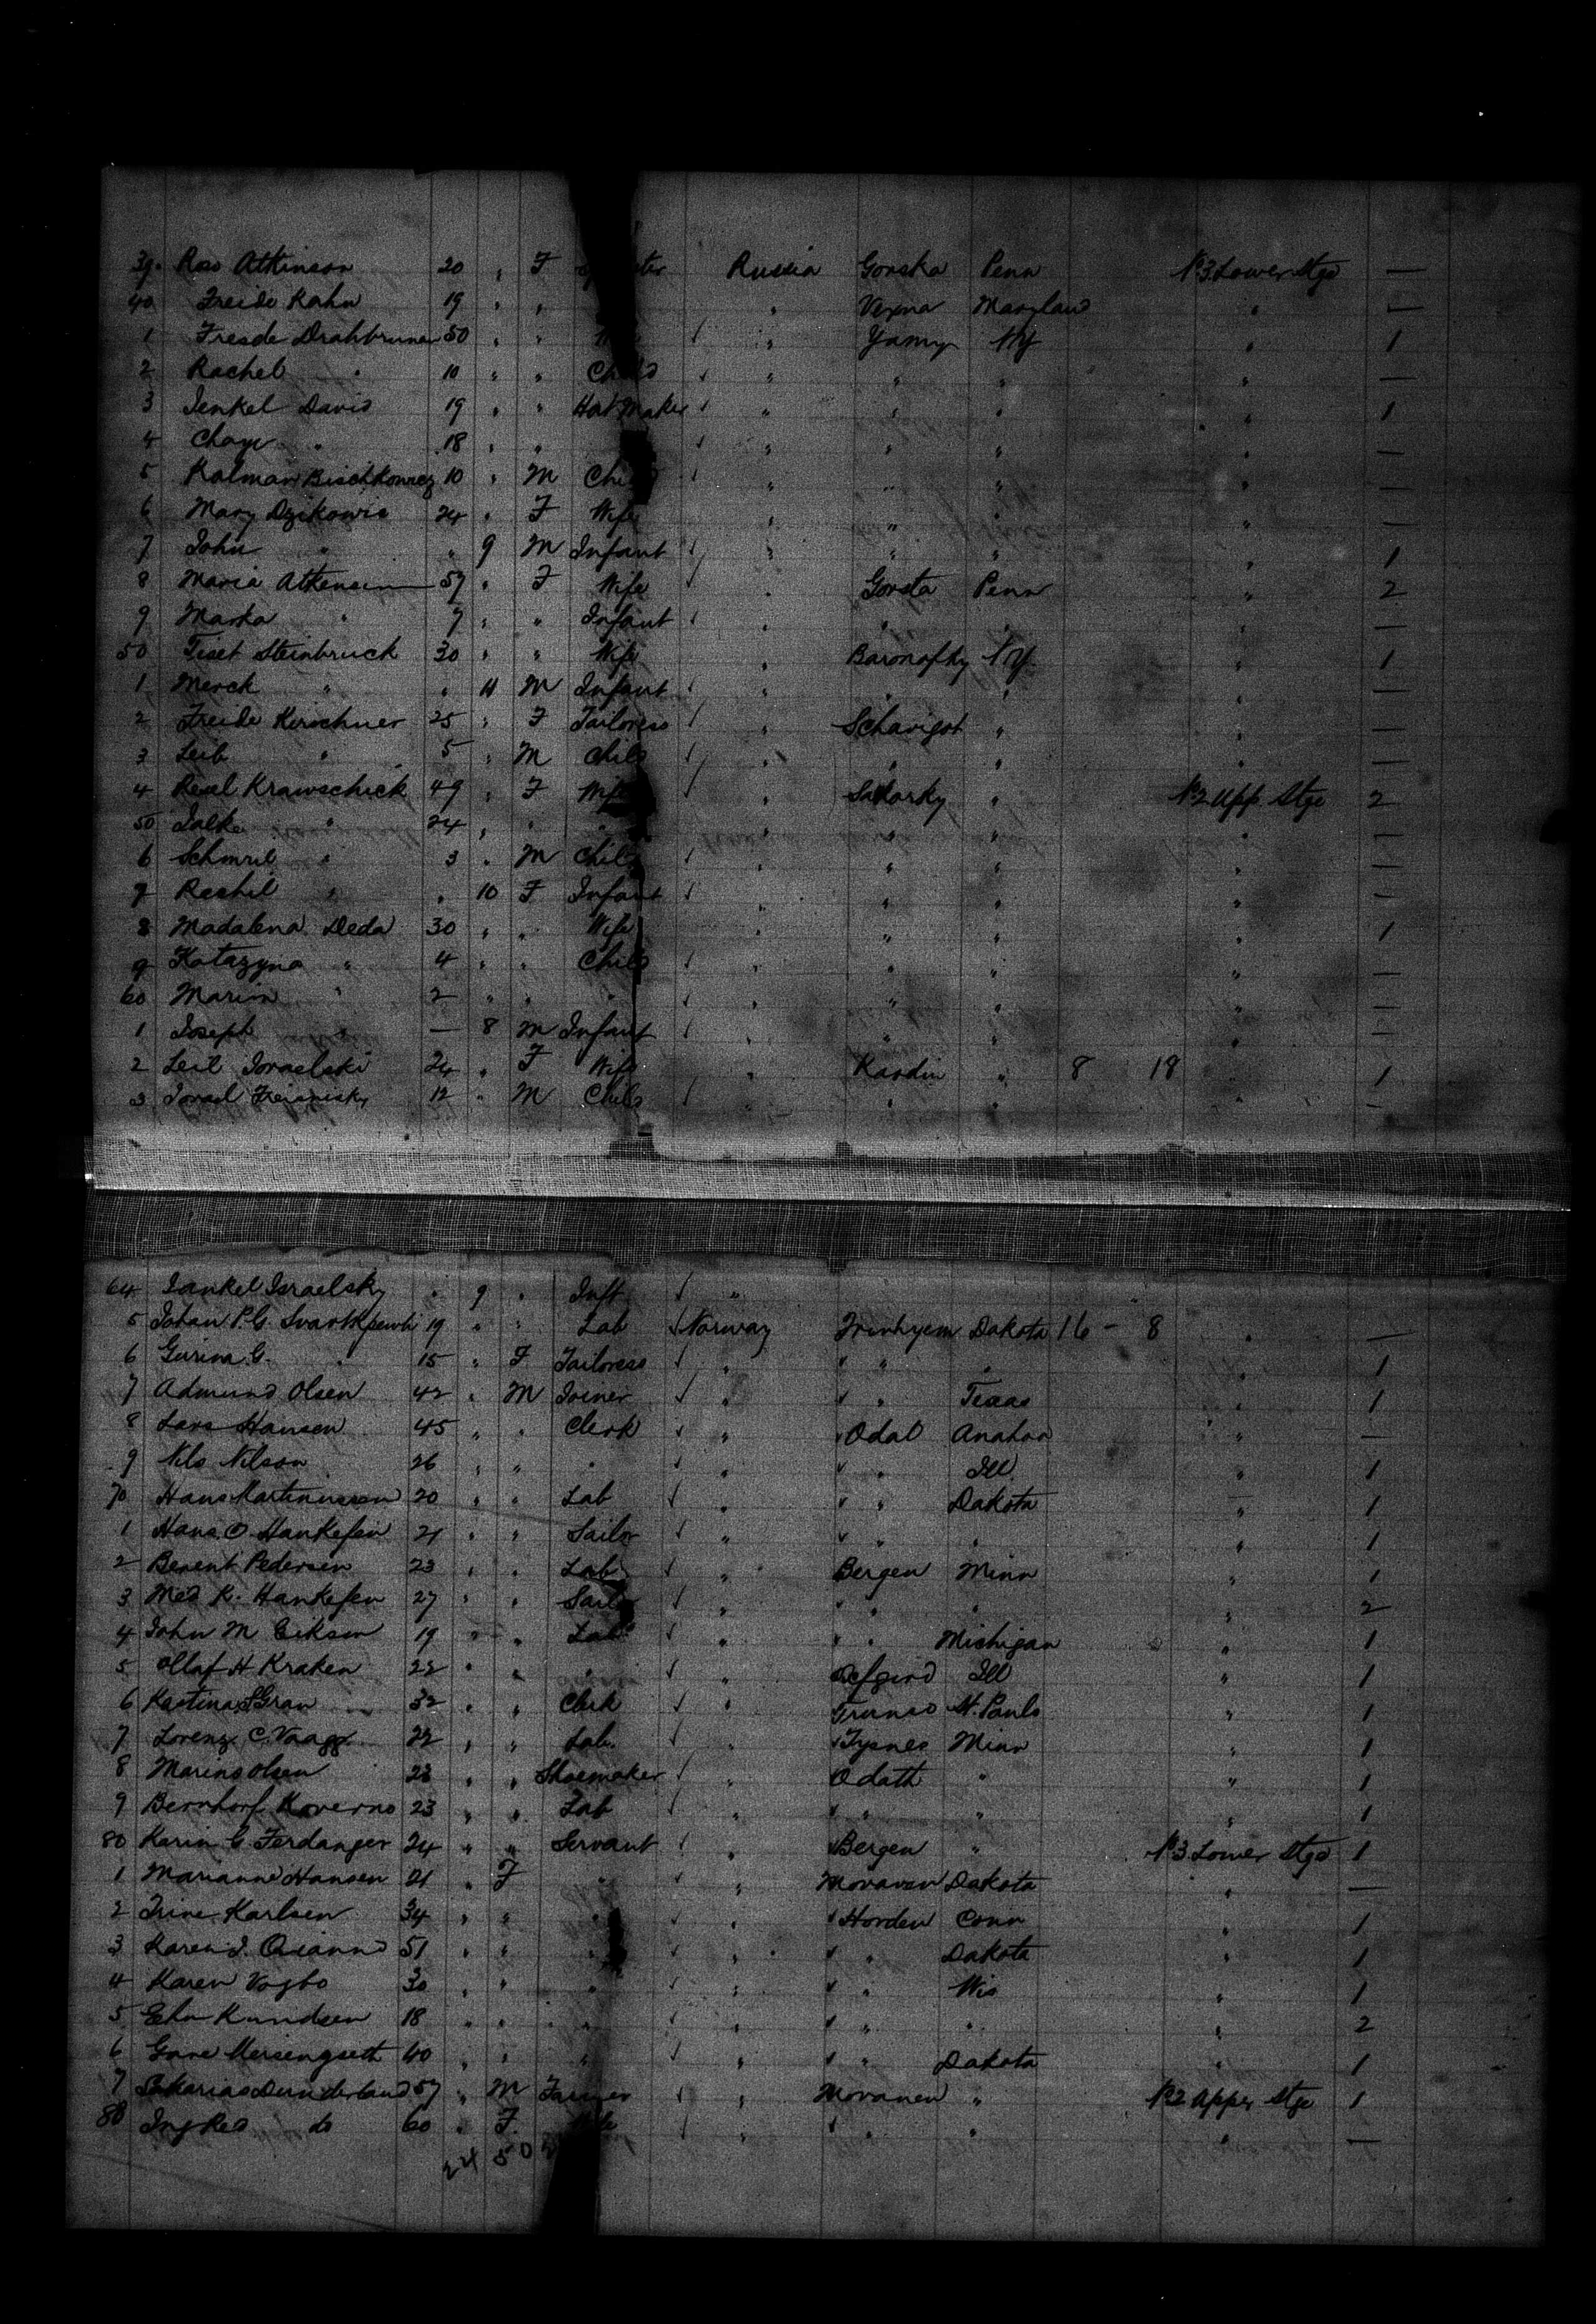 39. Rosa Atkinson 20 " F Russia Gorska Penn No 3 Lower Stge —
40 Freide Kahn 19 " " " Vexna Maryland " —
1 Freade Drahbruner 50 " " " Yamy NY " 1
2 Rachel " 10 " " Child " " " " —
3 Jenkel David 19 " " Hat Maker " " " " 1
4 Chaye " 18 " " " " " " —
5 Kalman Bischkowicz 10 " M Child " " " " —
6 Mary Dzikowic 24 " F Wife " " " " —
7 John " " 9 M Infant " " " " 1
8 Maria Atkenson 57 " F Wife " Gorsta Penn " 2
9 Marka " 7 " " Infant " " " " —
50 Teset Steinbruck 30 " " Wife " Baronofky NY " 1
1 Merck " " 11 M Infant " " " " —
2 Freide Kirschner 25 " F Tailoress " Schavigot " " —
3 Leib " 5 " M Child " " " " —
4 Resel Krawschick 49 " F Wife " Sakorky " No 2 Upp. Stge 2
50 Jalke " 24 " " " " " " " —
6 Schmril " 3 " M Child " " " " —
7 Rechil " " 10 F Infant " " " " —
8 Madalena Deda 30 " " Wife " " " " 1
9 Katazyna " 4 " " Child " " " " —
60 Marion " 2 " " " " " " " —
1 Joseph " — 8 M Infant " " " " —
2 Leil Israelski 24 " F Wife " Kardin " 8 18 1
3 Israel 12 " M Child " " " " —
64 Jankel Israelsky " 9 " Inft "
5 Johan P. G. 19 " " Lab Norway Dakota 16 - 8 " —
6 Gurina G. " 15 " F Tailoress " " " " 1
7 Admund Olsen 42 " M Joiner " " Texas " 1
8 Lars Hansen 45 " " Clerk " Odal " —
9 Nils Nilson 26 " " " " " Ill. " 1
70 Hans Martinussen 20 " " Lab " " Dakota " 1
1 Hans O. Hankefen 21 " " Sailor " " " " 1
2 Berent Pedersen 23 " " Lab " Bergen Minn " 1
3 Med K. Hankefen 27 " " Sailor " " " " 2
4 John M Eikson 19 " " Lab " " Michigan " 1
5 Ollaf H Kraken 22 " " " " Ill " 1
6 Kastina S Gran 32 " " Clerk " Trunso St. Pauls " 1
7 Lorenz C. Vaagg 22 " " Lab. " Tysnes Minn " 1
8 Marins Olsen 23 " " Shoemaker " Odath " " 1
9 Bernhorf Koverno 23 " " Lab " " " " 1
80 Karin G. Ferdanger 24 " " Servant " Bergen " No 3 Lower Stge 1
1 Marianne Hansen 21 " F " " Movanen Dakota " —
2 Trine Karlsen 34 " " " " Horden Conn " 1
3 Karen J. 51 " " " " " Dakota " 1
4 Karen Vogbo 30 " " " " " Wis " 1
5 Knudsen 18 " " " " " " " 2
6 40 " " " " " Dakota " 1
7 Sakarias Dunderland 57 " M Farmer " Movanen " No 2 Upper Stge 1
88 Ingred do 60 " F. " " " " —
24 50